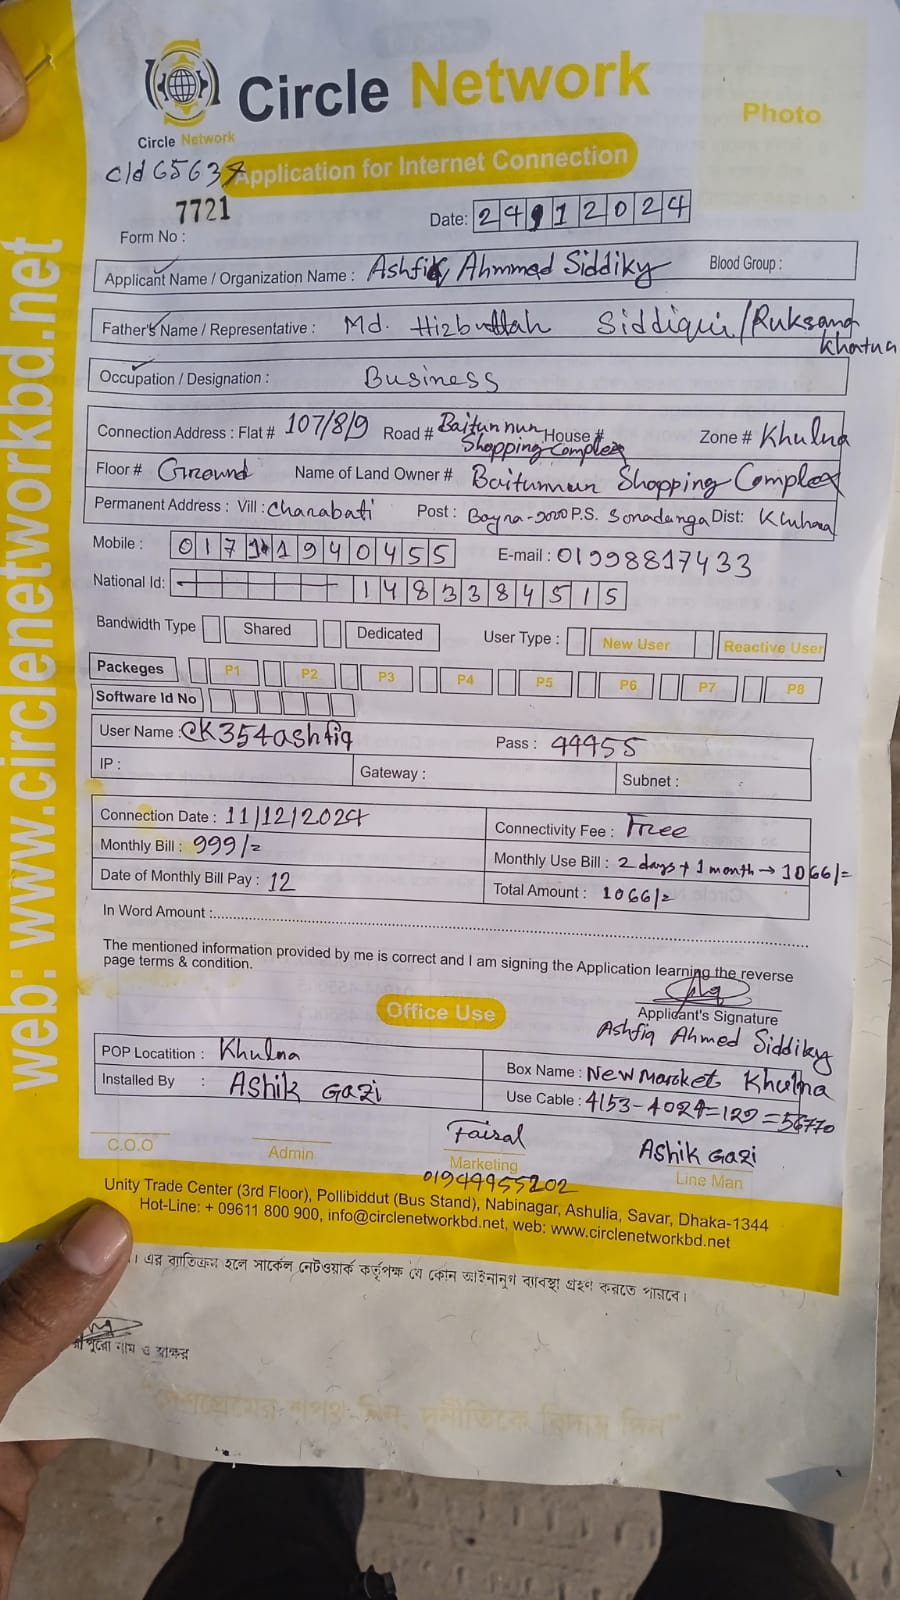 Circle Network
Circle Network
Photo
c/d 65637
Application for Internet Connection
7721
Form No :
Date: 24 12024
Applicant Name / Organization Name : Ashfiq Ahmmed Siddiky Blood Group :
Father's Name / Representative : Md. Hizbullah Siddiqui/Ruksana Khatun
Occupation / Designation : Business
Connection Address : Flat # 107/8/9 Road # Baitunnun Shopping Complex House # Zone # Khulna
Floor # Ground Name of Land Owner # Baitunnun Shopping Complex
Permanent Address : Vill : Charabati Post : Boyra-9000 P.S. Sonadanga Dist: Khulna
Mobile : 01711940455 E-mail : 01998817433
National Id: 1483384515
Bandwidth Type Shared Dedicated User Type : New User Reactive User
Packeges P1 P2 P3 P4 P5 P6 P7 P8
Software Id No
User Name : CK354ashfiq Pass : 99955
IP : Gateway : Subnet :
Connection Date : 11/12/2024 Connectivity Fee : Free
Monthly Bill : 999/= Monthly Use Bill : 2 days + 1 month → 1066/=
Date of Monthly Bill Pay : 12 Total Amount : 1066/=
In Word Amount :
The mentioned information provided by me is correct and I am signing the Application learning the reverse
page terms & condition.
Applicant's Signature
Ashfiq Ahmed Siddiky
Office Use
POP Locatition : Khulna Box Name : New Market Khulna
Installed By : Ashik Gazi Use Cable : 4153-4024=129=56770
Faisal Ashik Gazi
C.O.O Admin Marketing Line Man
01949955202
Unity Trade Center (3rd Floor), Pollibiddut (Bus Stand), Nabinagar, Ashulia, Savar, Dhaka-1344
Hot-Line: + 09611 800 900, info@circlenetworkbd.net, web: www.circlenetworkbd.net
web: www.circlenetworkbd.net
। এর ব্যতিক্রম হলে সার্কেল নেটওয়ার্ক কর্তৃপক্ষ যে কোন আইনানুগ ব্যবস্থা গ্রহণ করতে পারবে।
পুরো নাম ও স্বাক্ষর
"দেশপ্রেমের শপথ নিন, দুর্নীতিকে বিদায় দিন"